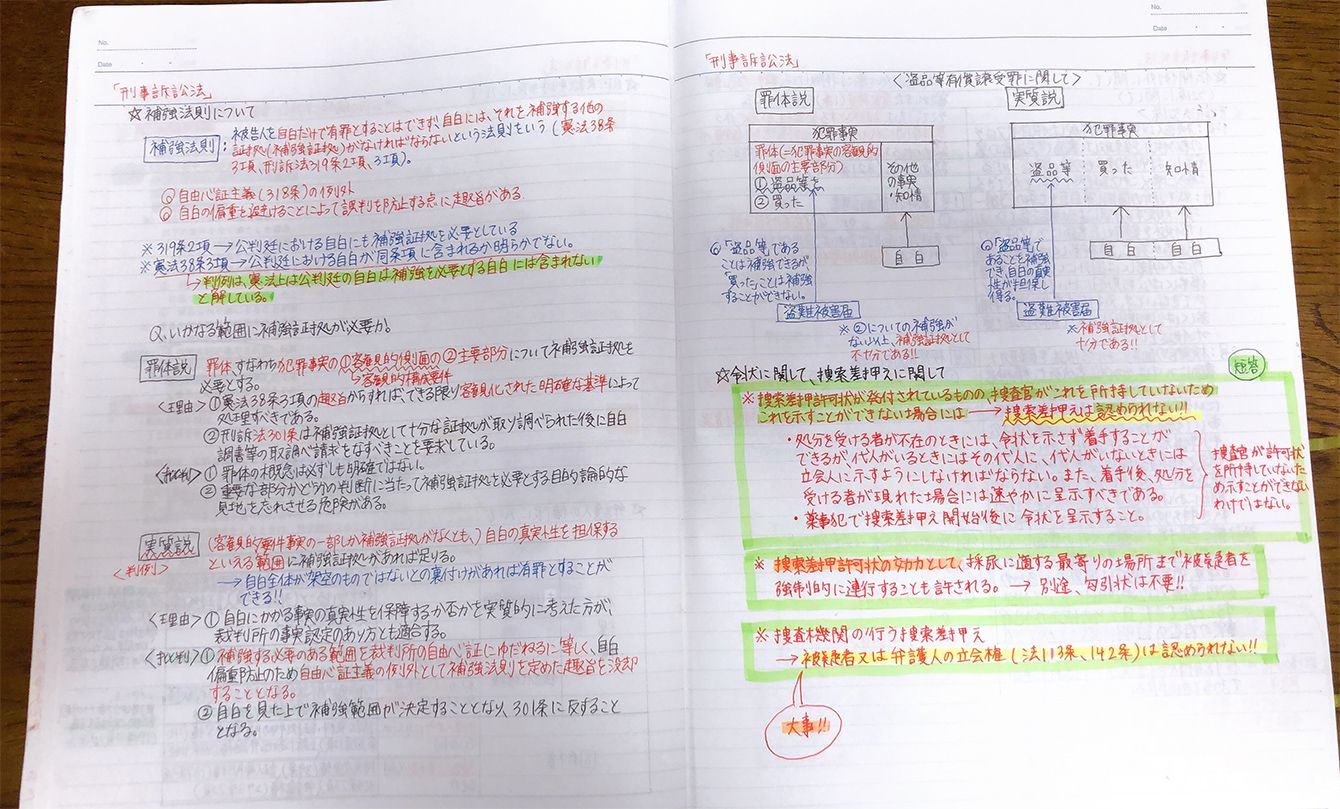 No.
Date
「刑事訴訟法」
☆補強法則について
補強法則 : 被告人を自白だけで有罪とすることはできず、自白には、それを補強する他の
証拠(補強証拠)がなければならないという法則をいう(憲法38条
3項、刑訴法319条2項、3項)。
◎自由心証主義(318条)の例外
◎自白の偏重を避けることによって誤判を防止する点に趣旨がある。
※319条2項→公判廷における自白にも補強証拠を必要としている
※憲法38条3項→公判廷における自白が同条項に含まれるか明らかでない。
↳判例は、憲法上は公判廷の自白は補強を必要とする自白には含まれない
と解している。
Q、いかなる範囲に補強証拠が必要か。
罪体説 罪体、すなわち犯罪事実の①客観的側面の②主要部分について補強証拠を
必要とする。
↳客観的構成要件
<理由>①憲法38条3項の趣旨からすれば、できる限り客観化された明確な基準によって
処理すべきである。
②刑訴法301条は補強証拠として十分な証拠が取り調べられた後に自白
調書等の取調べ請求をなすべきことを要求している。
<批判>①罪体の概念は必ずしも明確ではない。
②重要な部分かどうかの判断に当たって補強証拠を必要とする目的論的な
見地を忘れさせる危険がある。
実質説 (客観的要件事実の一部しか補強証拠がなくとも、)自白の真実性を担保する
<判例> といえる範囲に補強証拠があれば足りる。
→自白全体が架空のものではないとの裏付けがあれば有罪とすることが
できる!!
<理由>①自白にかかる事実の真実性を保障するか否かを実質的に考えた方が、
裁判所の事実認定のあり方とも適合する。
<批判>①補強する必要のある範囲を裁判所の自由心証にゆだねるに等しく、自白
偏重防止のため自由心証主義の例外として補強法則を定めた趣旨を没却
することとなる。
②自白を見た上で補強範囲が決定することとなり、301条に反すること
となる。
No.
Date
「刑事訴訟法」
<盗品等有償譲受罪に関して>
罪体説
犯罪事実
罪体(=犯罪事実の客観的
側面の主要部分)
①盗品等を
②買った
その他
の事実
・知情
自白
◎「盗品等」である
ことは補強できるが
「買った」ことは補強
することができない。
盗難被害届
※②についての補強が
ない以上、補強証拠として
不十分である!!
実質説
犯罪事実
盗品等 買った 知情
自白 自白
◎「盗品等」で
あることを補強
でき、自白の真実
性が担保し
得る。
盗難被害届
※補強証拠として
十分である!!
☆令状に関して、捜索差押えに関して
短答
※捜索差押許可状が発付されているものの、捜査官がこれを所持していないため
これを示すことができない場合には → 捜索差押えは認められない!!
・処分を受ける者が不在のときには、令状を示さず着手することが
できるが、代人がいるときにはその代人に、代人がいないときには
立会人に示すようにしなければならない。また、着手後、処分を
受ける者が現れた場合には速やかに呈示すべきである。
・薬事犯で捜索差押え開始後に令状を呈示すること。
捜査官が許可状
を所持していないた
め示すことができない
わけではない。
※捜索差押許可状の効力として、採尿に適する最寄りの場所まで被疑者を
強制的に連行することも許される。→ 別途、勾引状は不要!!
※捜査機関の行う捜索差押え
→被疑者又は弁護人の立会権(法113条、142条)は認められない!!
大事!!